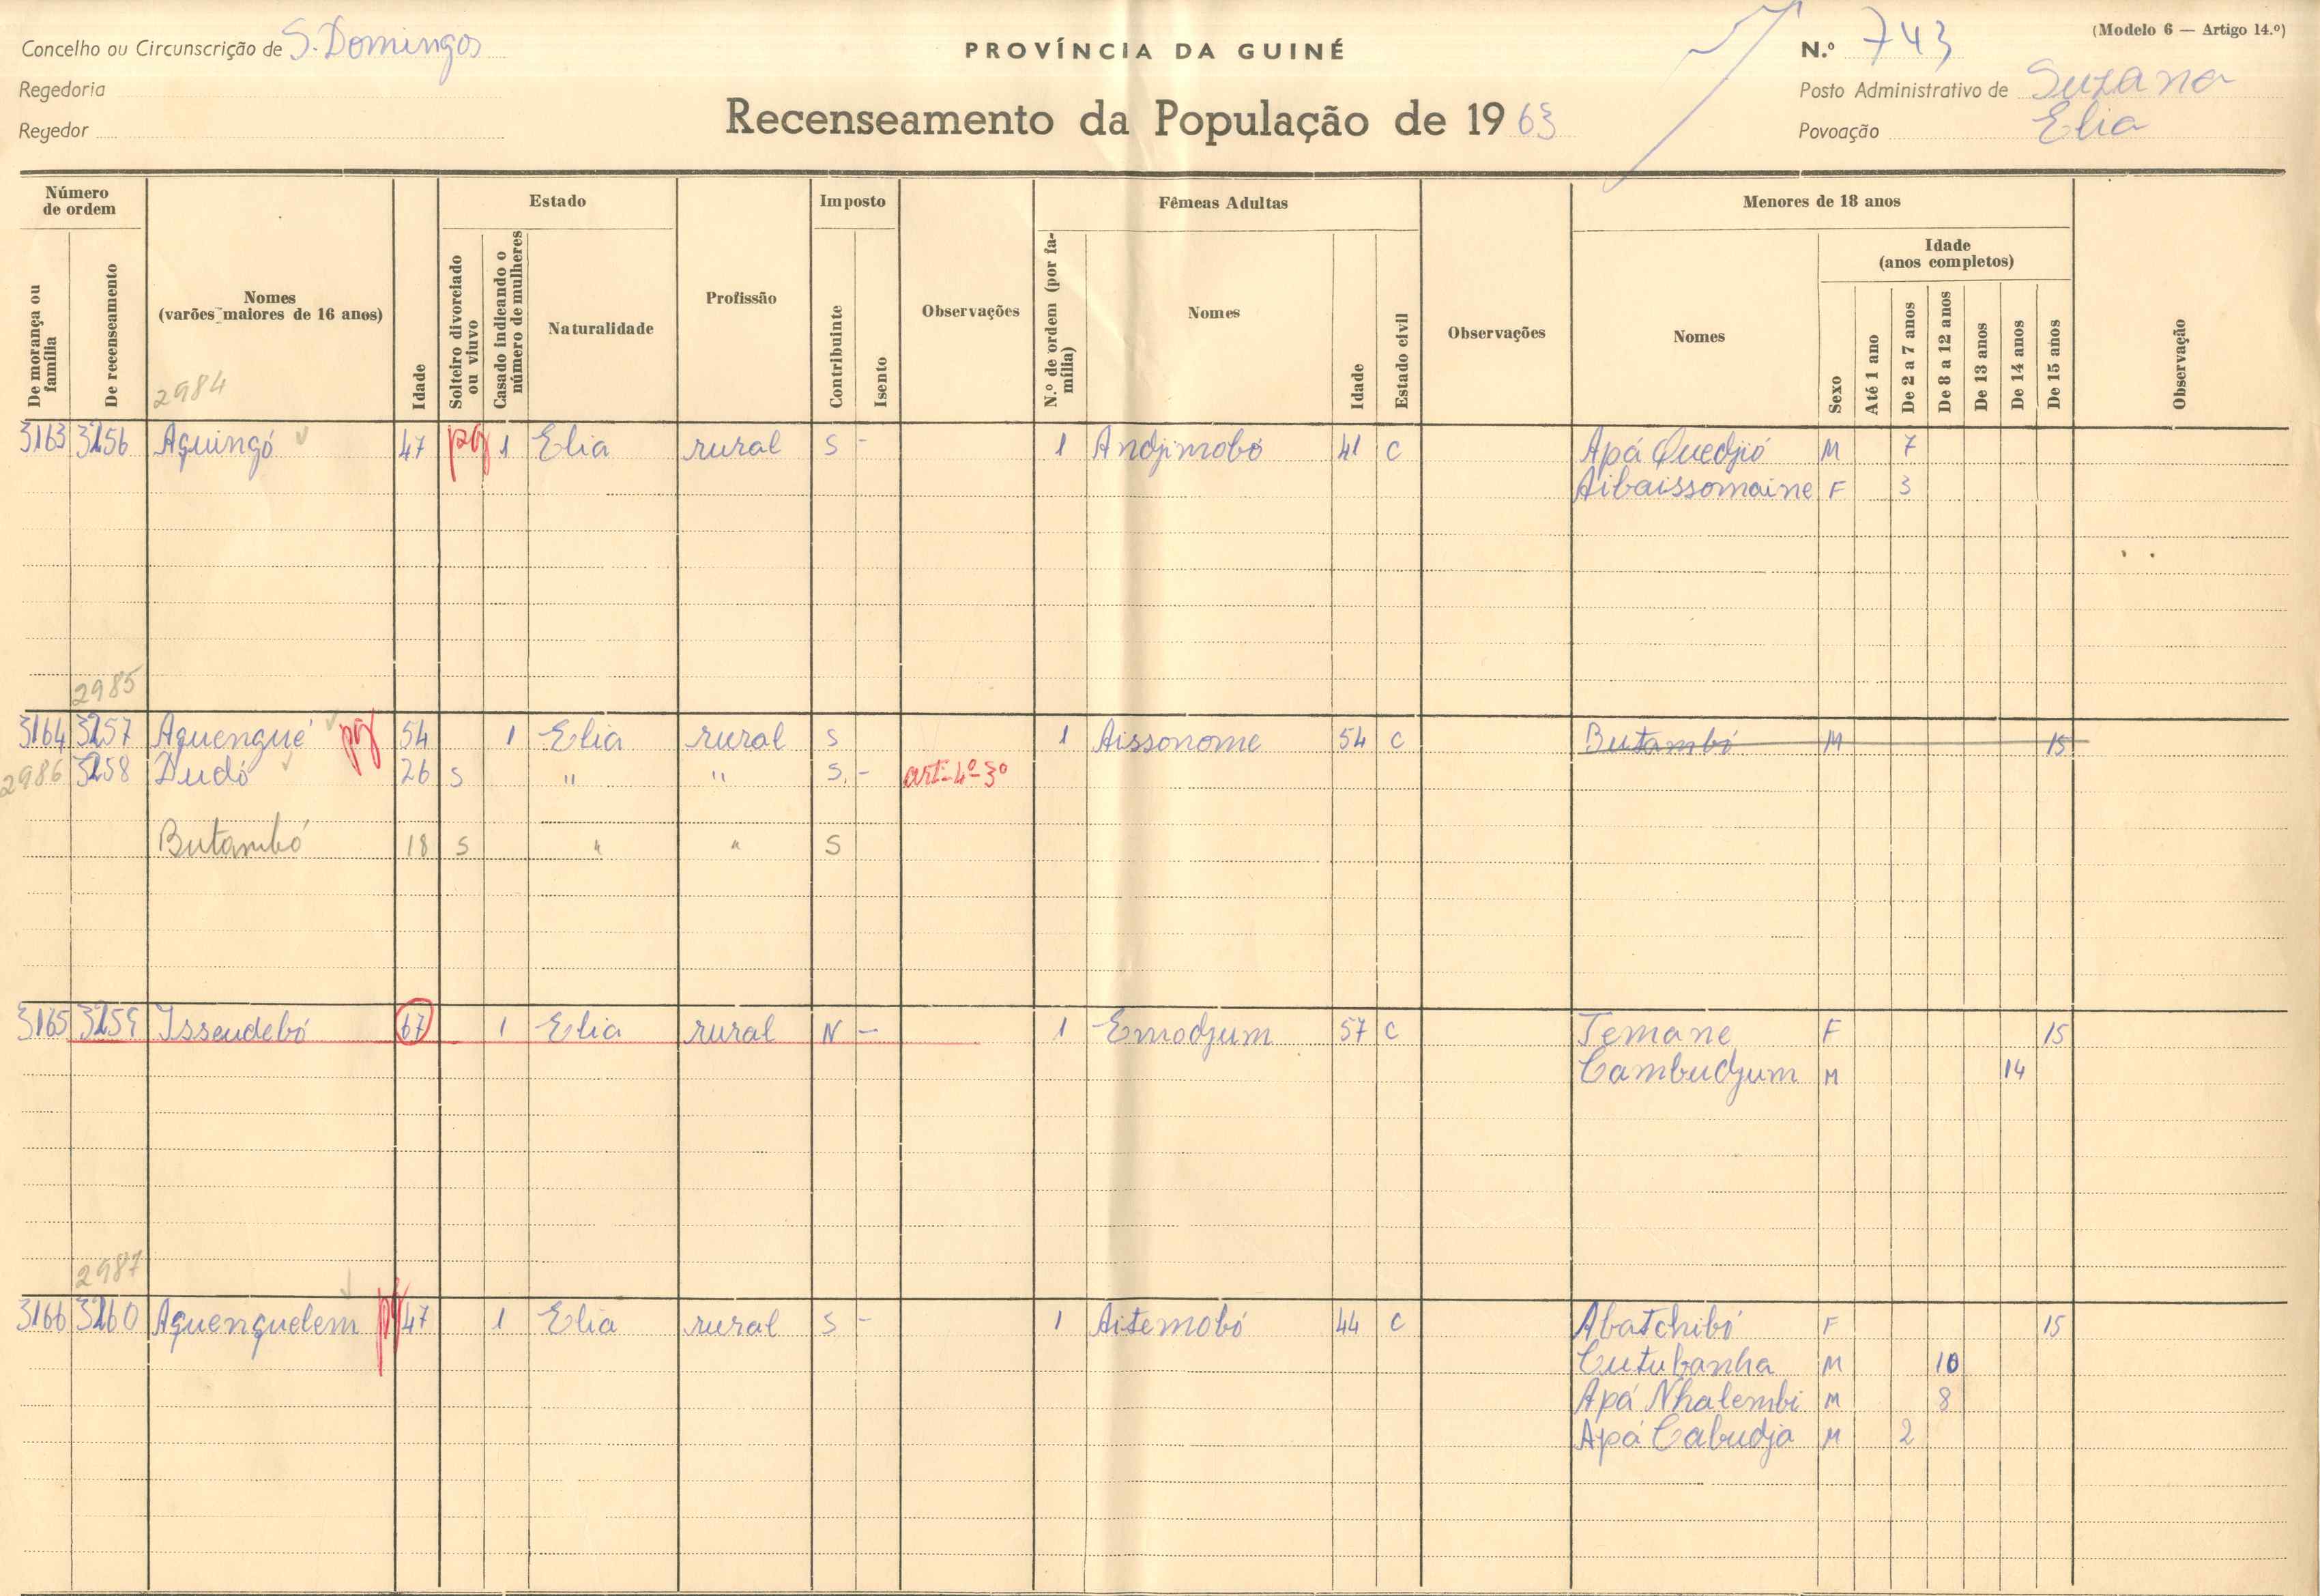 (Modelo 6 — Artigo 14.º)
Concelho ou Circunscrição de S. Domingos
PROVÍNCIA DA GUINÉ
N.º 743
Regedoria
Posto Administrativo de Suzana
Regedor
Recenseamento da População de 1963
Povoação Elia
Número de ordem
Estado
Imposto
Fêmeas Adultas
Menores de 18 anos
De morança ou família
De recenseamento
Nomes (varões maiores de 16 anos)
Idade
Solteiro divorciado ou viuvo
Casado indicando o número de mulheres
Naturalidade
Profissão
Contribuinte
Isento
Observações
N.º de ordem (por família)
Nomes
Idade
Estado civil
Observações
Nomes
Sexo
Idade (anos completos)
Até 1 ano
De 2 a 7 anos
De 8 a 12 anos
De 13 anos
De 14 anos
De 15 anos
Observação
2984
3163 3256 Aquingó 47 pg 1 Elia rural S - 1 Andjimobó 41 C Apá Quedjió M 7
Aibaissomaine F 3
2985
3164 3257 Aquenqué pg 54 1 Elia rural S 1 Aissonome 54 C Butambó M 15
2986 3258 Dudó 26 S " " S. - art-4º-3º
Butambó 18 S " " S
3165 3259 Isseudebó 67 1 Elia rural N - 1 Emodjum 57 C Temane F 15
Cambudjum M 14
2987
3166 3260 Aquenquelem pg 47 1 Elia rural S - 1 Aitemobó 44 C Abatchibó F 15
Cutubanha M 10
Apá Nhalembi M 8
Apá Cabudja M 2